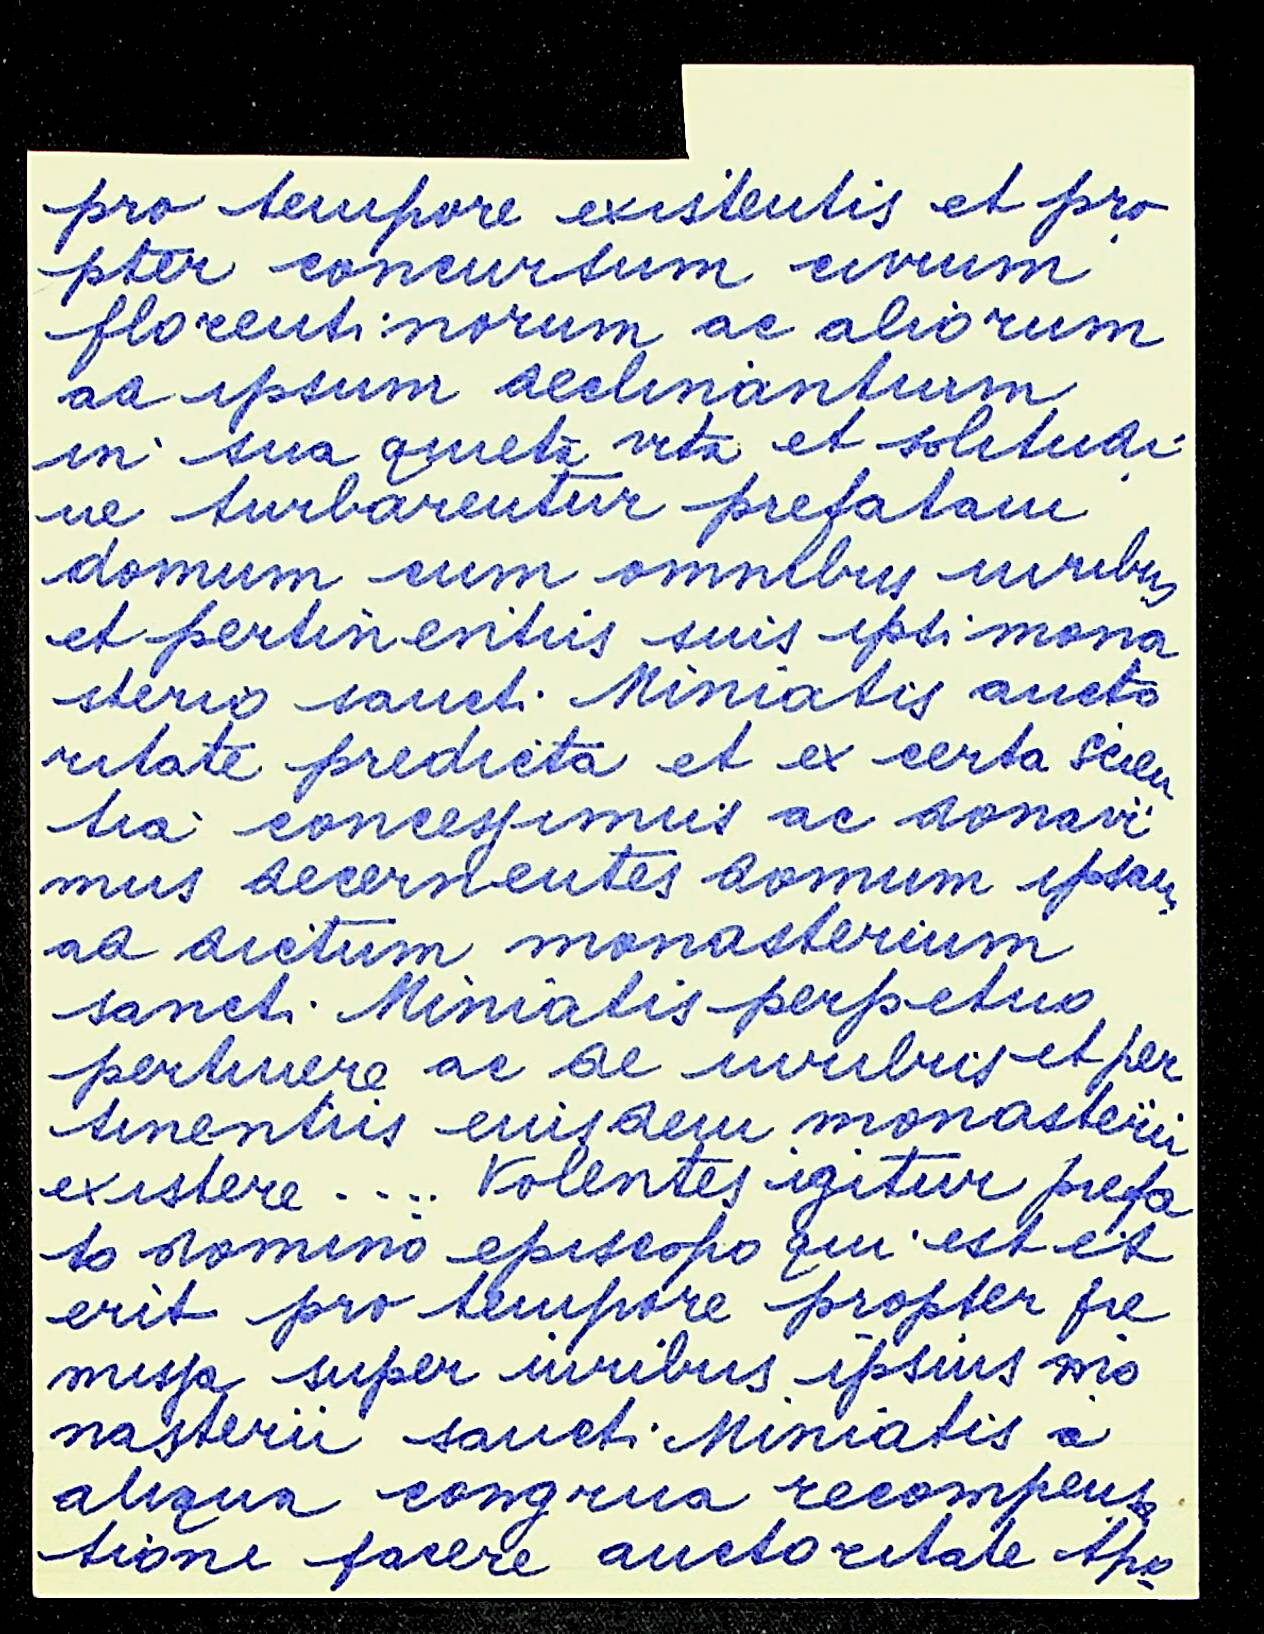 pro tempore existentis et pro
pter concursum civium
florentinorum ac aliorum
ad ipsum declinantium
in sua quieta vita et solitudi
ne turbarentur prefatam
domum cum omnibus iuribus
et pertinentiis suis ipsi mona
sterio sancti Miniatis aucto
ritate predicta et ex certa scien
tia concessimus ac donavi
mus decernentes domum ipsam
ad dictum monasterium
sancti Miniatis perpetuo
pertinere ac de iuribus et per
tinentiis eiusdem monasterii
existere ..... Volentes igitur prefa
to domino episcopo qui est et
erit pro tempore propter pre
missa super iuribus ipsius mo
nasterii sancti Miniatis a
aliqua congrua recompensa
tione facere auctoritate Apo